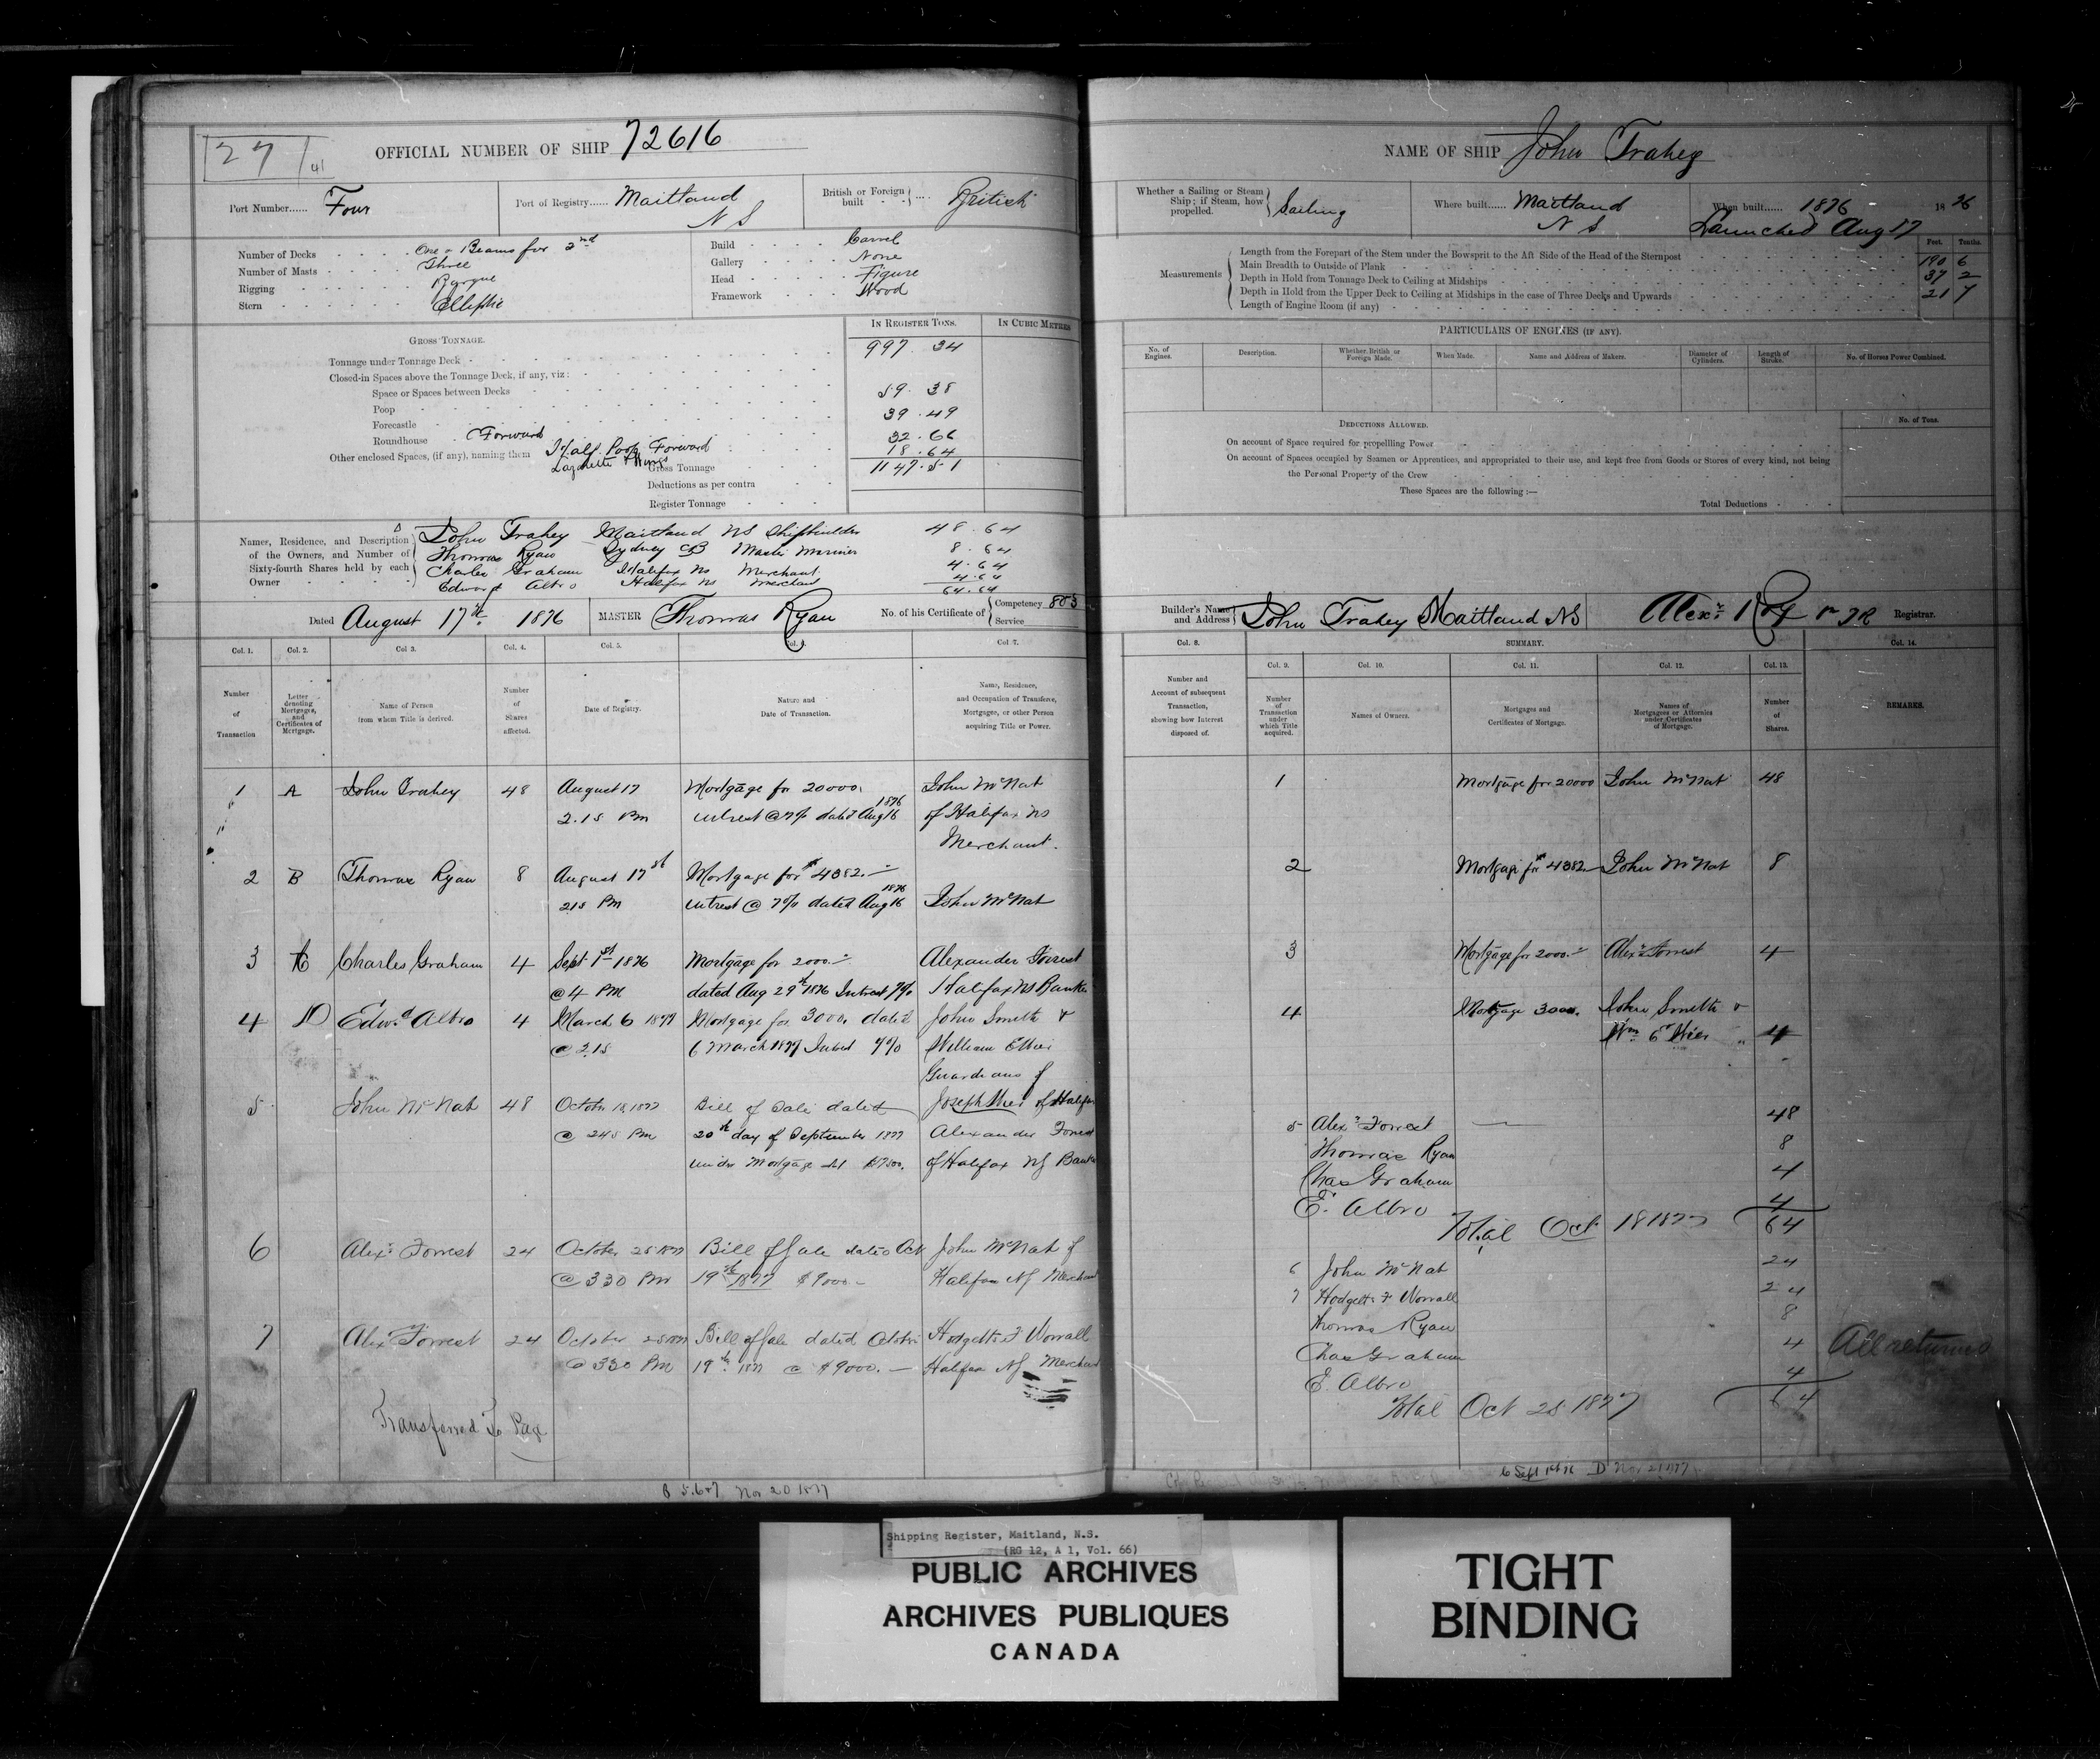 27 41
OFFICIAL NUMBER OF SHIP 72616
Port Number...... Four
Port of Registry...... Maitland N S
British or Foreign built .... British
Number of Decks One & Beams for 2nd
Number of Masts Three
Rigging Barque
Stern Elliptic
Build Carvel
Gallery None
Head Figure
Framework Wood
GROSS TONNAGE.
IN REGISTER TONS. IN CUBIC METRES
Tonnage under Tonnage Deck 997. 34
Closed-in Spaces above the Tonnage Deck, if any, viz:
Space or Spaces between Decks
Poop 59. 38
Forecastle 39.49
Roundhouse Forward
Other enclosed Spaces, (if any), naming them Half Poop Forward 32.66
Lazarette & Wings 18.64
Gross Tonnage 1147.51
Deductions as per contra
Register Tonnage
Names, Residence, and Description of the Owners, and Number of Sixty-fourth Shares held by each Owner
John Trahey Maitland NS Shipbuilder 48.64
Thomas Ryan Sydney CB Master Mariner 8.64
Charles Graham Halifax NS Merchant 4.64
Edward Albro Halifax NS Merchant 4.64
64.64
Dated August 17th 1876 MASTER Thomas Ryan No. of his Certificate of Competency 803 Service
Col. 1. Col. 2. Col 3. Col. 4. Col. 5. Col. 6. Col 7.
Number of Transaction
Letter denoting Mortgages, and Certificates of Mortgage.
Name of Person from whom Title is derived.
Number of Shares affected.
Date of Registry.
Nature and Date of Transaction.
Name, Residence, and Occupation of Transferee, Mortgagee, or other Person acquiring Title or Power.
1 A John Trahey 48 August 17 Mortgage for 20000. John McNab
2.15 Pm intrest @ 7% dated Aug 16 1876 of Halifax NS
Merchant.
2 B Thomas Ryan 8 August 17st Mortgage for $4382.-
215 Pm intrest @ 7% dated Aug 16 1876 John McNab
3 C Charles Graham 4 Sept 1st 1876 Mortgage for 2000.- Alexander Forrest
@ 4 PM dated Aug 29st 1876 Intrest 7% Halifax NS Banker
4 D Edwd Albro 4 March 6 1877 Mortgage for 3000. dated John Smith &
@ 2.15 6 March 1877 Intrest 7% William
Guardians of
5 John McNab 48 October 18, 1877 Bill of Sale dated Joseph of Halifax
@ 245 PM 20th day of September 1877 Alexander Forrest
under Mortgage of Halifax NS Banker
6 Alexr Forrest 24 October 25 1877 Bill of Sale dated Oct John McNab of
@ 330 Pm 19th 1877 $9000.- Halifax NS Merchant
7 Alexr Forrest 24 October 25 1877 Bill of Sale dated October Hodgetts F Worrall
@ 330 PM 19th 1877 @ $9000.- Halifax NS Merchant
Transferred To Page
B 5.6&7 Nov 20 1877
NAME OF SHIP John Trahey
Whether a Sailing or Steam Ship; if Steam, how propelled. Sailing
Where built...... Maitland N S
When built...... 1876 18 76
Launched Aug 17
Feet. Tenths.
Measurements
Length from the Forepart of the Stem under the Bowsprit to the Aft Side of the Head of the Sternpost 190 6
Main Breadth to Outside of Plank 37 2
Depth in Hold from Tonnage Deck to Ceiling at Midships 21 7
Depth in Hold from the Upper Deck to Ceiling at Midships in the case of Three Decks and Upwards
Length of Engine Room (if any)
PARTICULARS OF ENGINES (IF ANY).
No. of Engines. Description. Whether British or Foreign Made. When Made. Name and Address of Makers. Diameter of Cylinders. Length of Stroke. No. of Horses Power Combined.
DEDUCTIONS ALLOWED. No. of Tons.
On account of Space required for propelling Power
On account of Spaces occupied by Seamen or Apprentices, and appropriated to their use, and kept free from Goods or Stores of every kind, not being
the Personal Property of the Crew
These Spaces are the following :—
Total Deductions
Builder's Name and Address John Trahey Maitland NS Alexr Roy Registrar.
Col. 8. SUMMARY. Col. 14.
Col. 9. Col. 10. Col. 11. Col. 12. Col. 13.
Number and Account of subsequent Transaction, showing how Interest disposed of.
Number of Transaction under which Title acquired.
Names of Owners.
Mortgages and Certificates of Mortgage.
Names of Mortgagees or Attornies under Certificates of Mortgage.
Number of Shares.
REMARKS.
1 Mortgage for 20000 John McNab 48
2 Mortgage for $4382.- John McNab 8
3 Mortgage for 2000.- Alexr Forrest 4
4 Mortgage 3000. John Smith &
Wm 4
5 Alexr Forrest 48
Thomas Ryan 8
Chas Graham 4
E. Albro 4
Total Oct 18 1877 64
6 John McNab 24
7 Hodgetts F Worrall 24
Thomas Ryan 8
Chas Graham 4
E. Albro 4
All returned
Total Oct 25 1877 64
C Sept 1st 76 D Nov 21 1877
Shipping Register, Maitland, N.S.
(RG 12, A 1, Vol. 66)
PUBLIC ARCHIVES
ARCHIVES PUBLIQUES
CANADA
TIGHT
BINDING